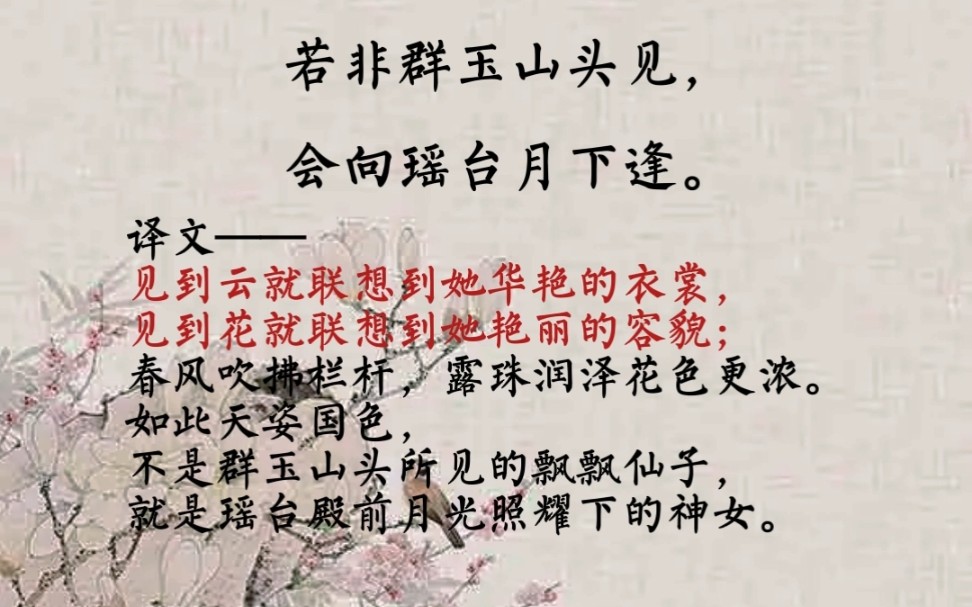 若非群玉山头见，
会向瑶台月下逢。
译文——
见到云就联想到她华艳的衣裳，
见到花就联想到她艳丽的容貌；
春风吹拂栏杆，露珠润泽花色更浓。
如此天姿国色，
不是群玉山头所见的飘飘仙子，
就是瑶台殿前月光照耀下的神女。